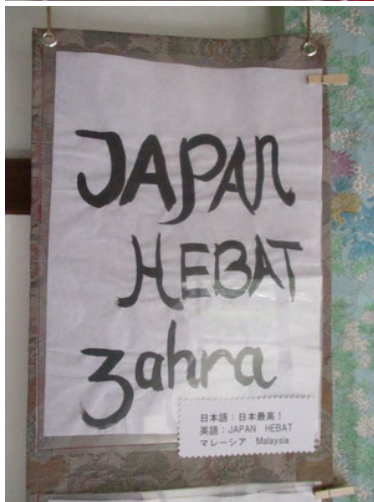 JAPAN
HEBAT
zahra
日本語：日本最高！
英語：JAPAN HEBAT
マレーシア Malaysia